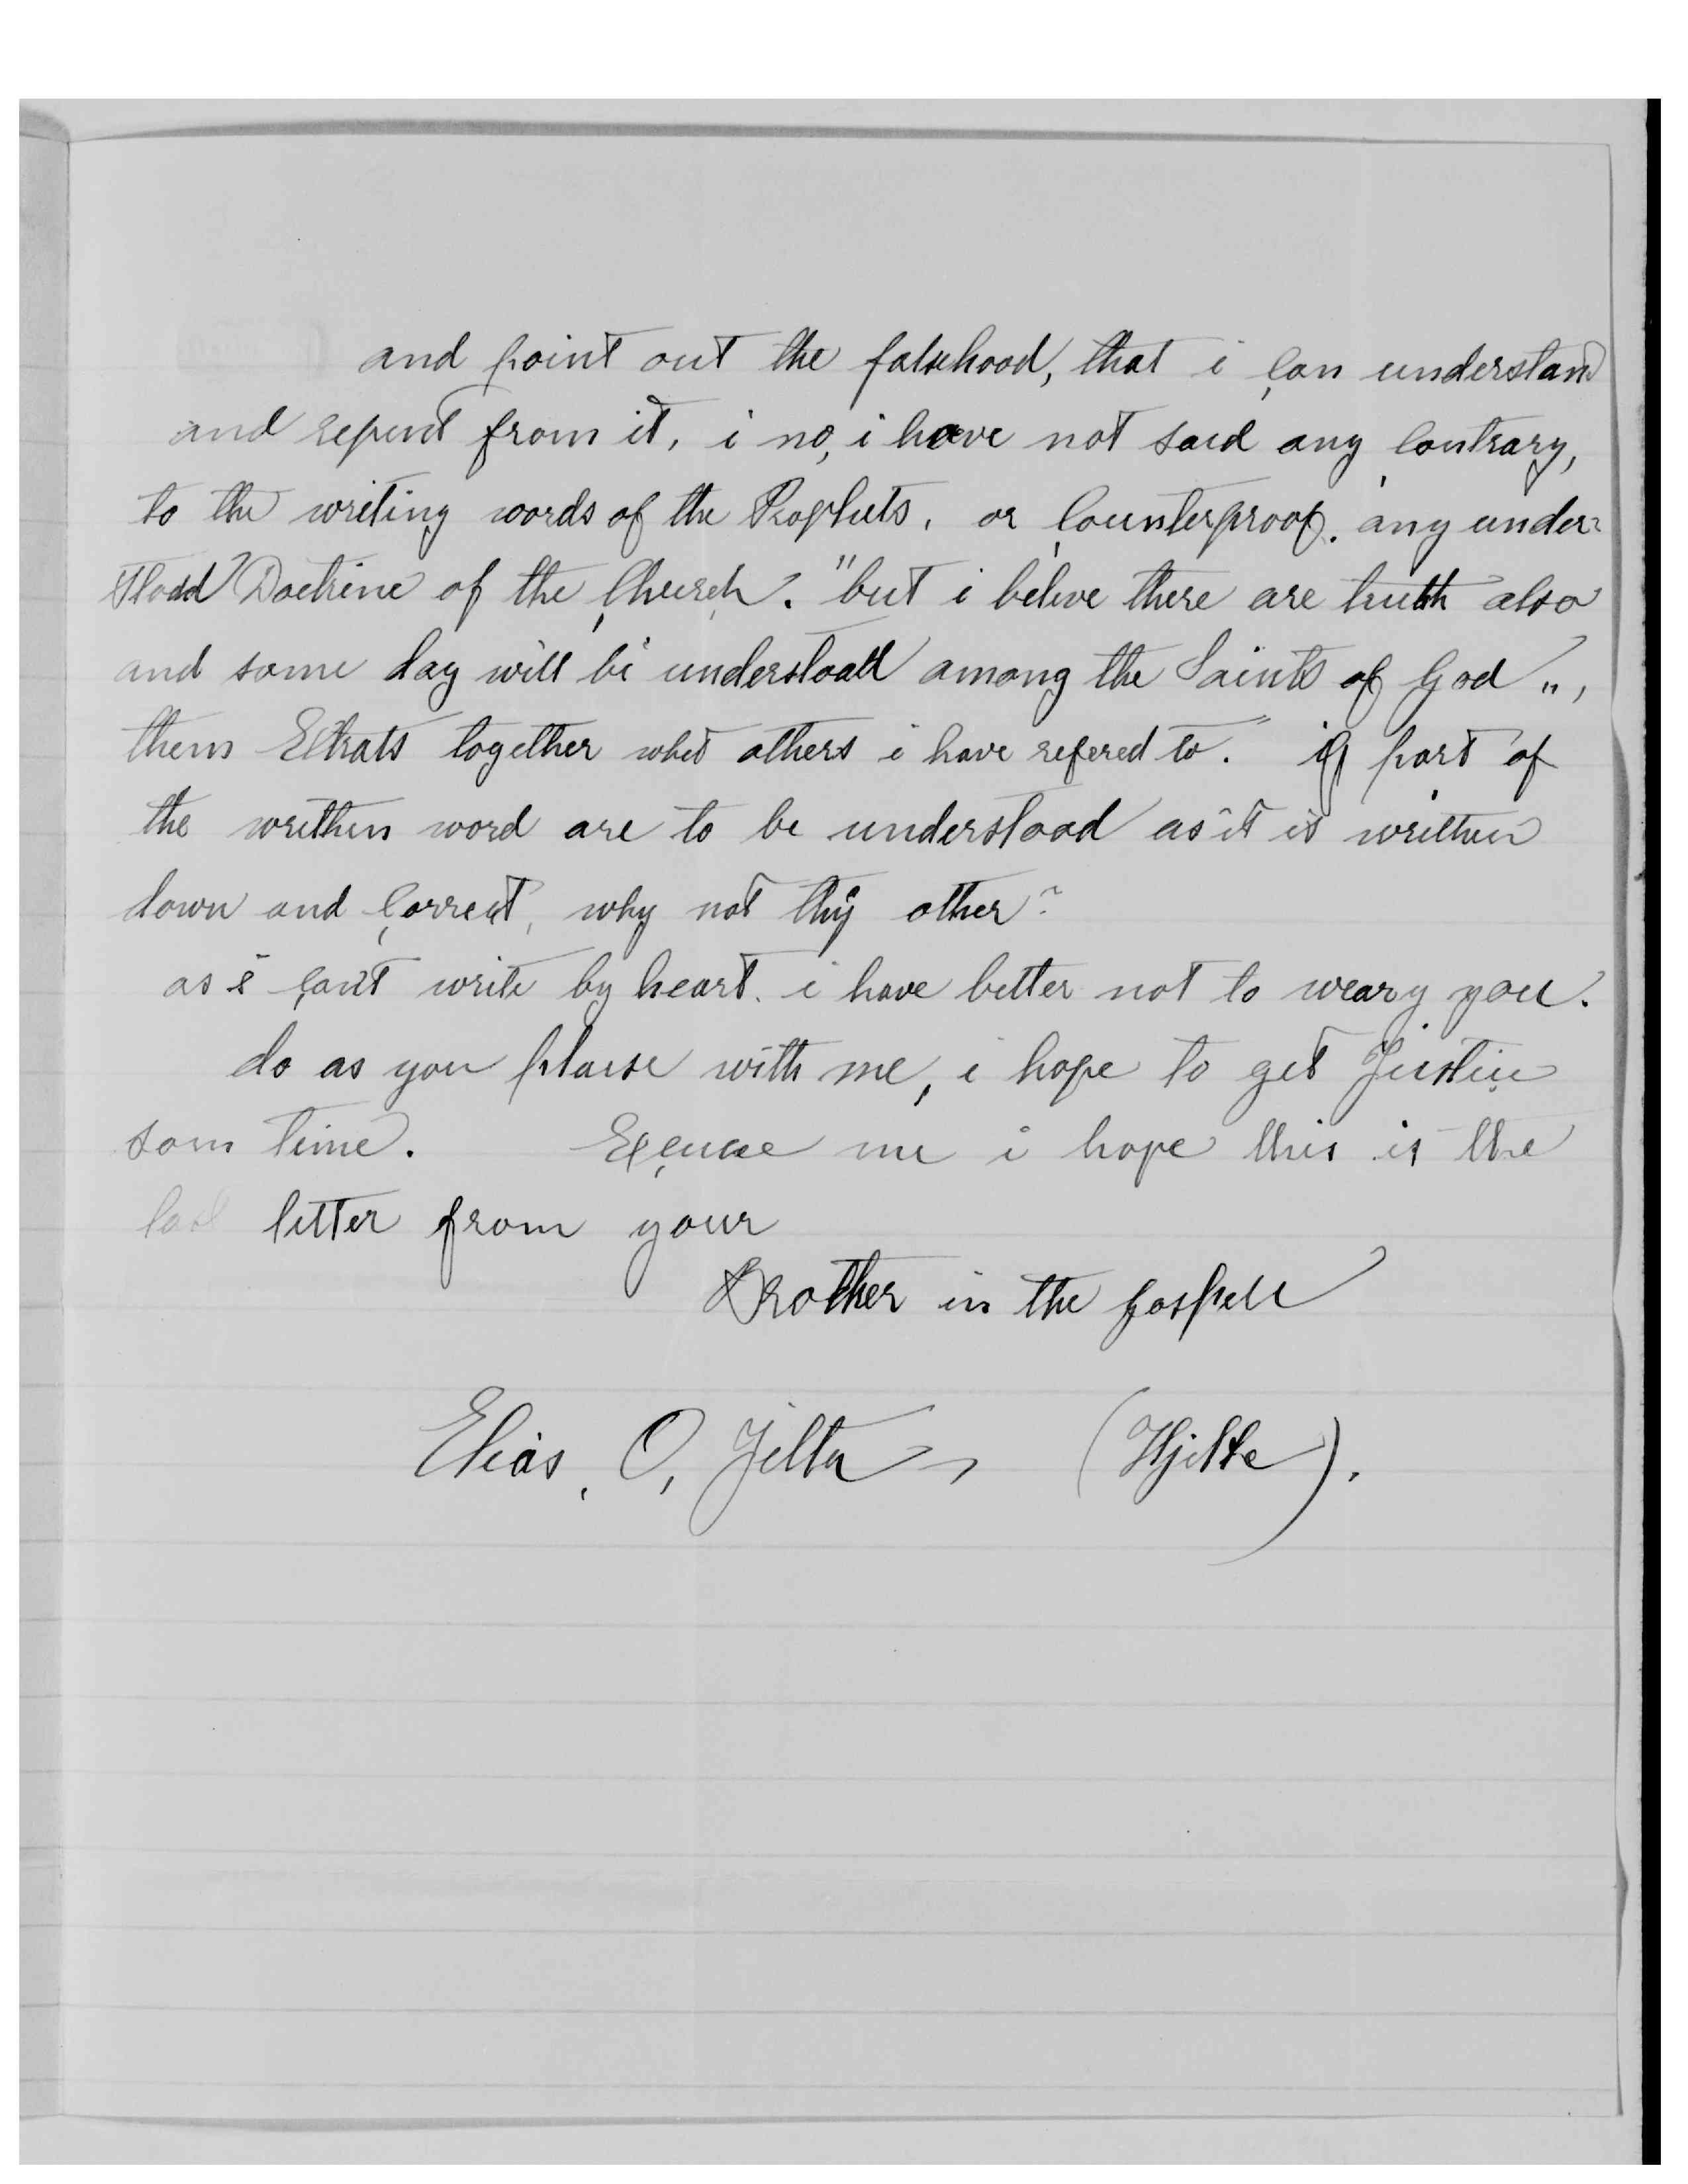 and point out the falsehood, that i can understand
and repent from it, i no, i have not said any contrary,
to the writing words of the Prophets, or Counterproof. any under=
stood Doctrine of the Church. "but i belive there are truth also
and some day will bi understood among the Saints of God",
them together whit others i have refered to." if part of
the writhen word are to be understood as it is written
down and correct, why not thy other?
as i can't write by heart. i have better not to weary you.
do as you plaise with me, i hope to get Justice
som time. Excuse me i hope this is the
last letter from your
Brother in the gospell
Elias, O, Jelte, (Hjelte).